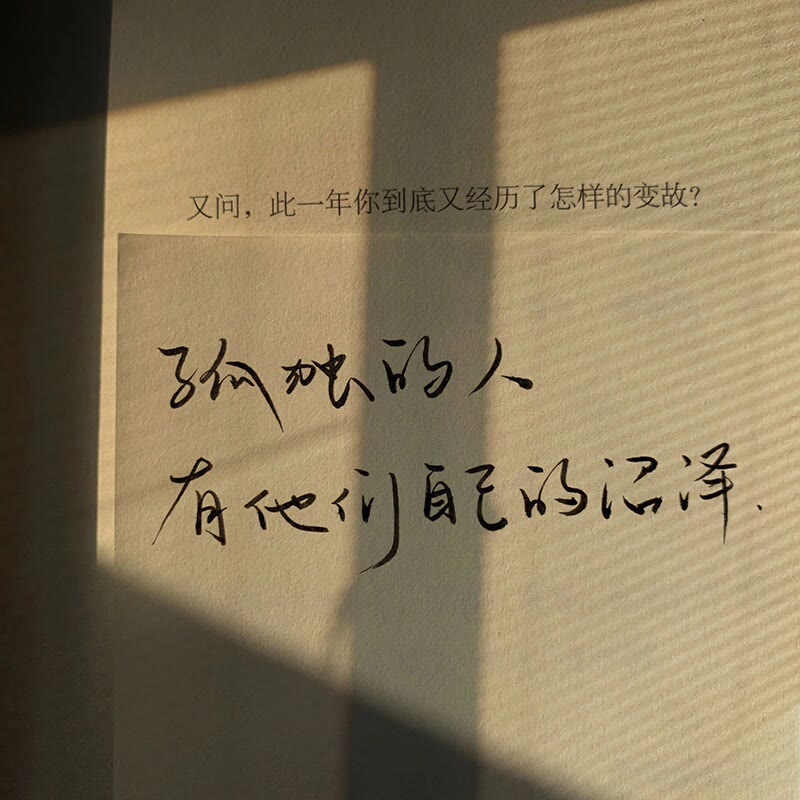 又问，此一年你到底又经历了怎样的变故？
孤独的人
有他们自己的沼泽.